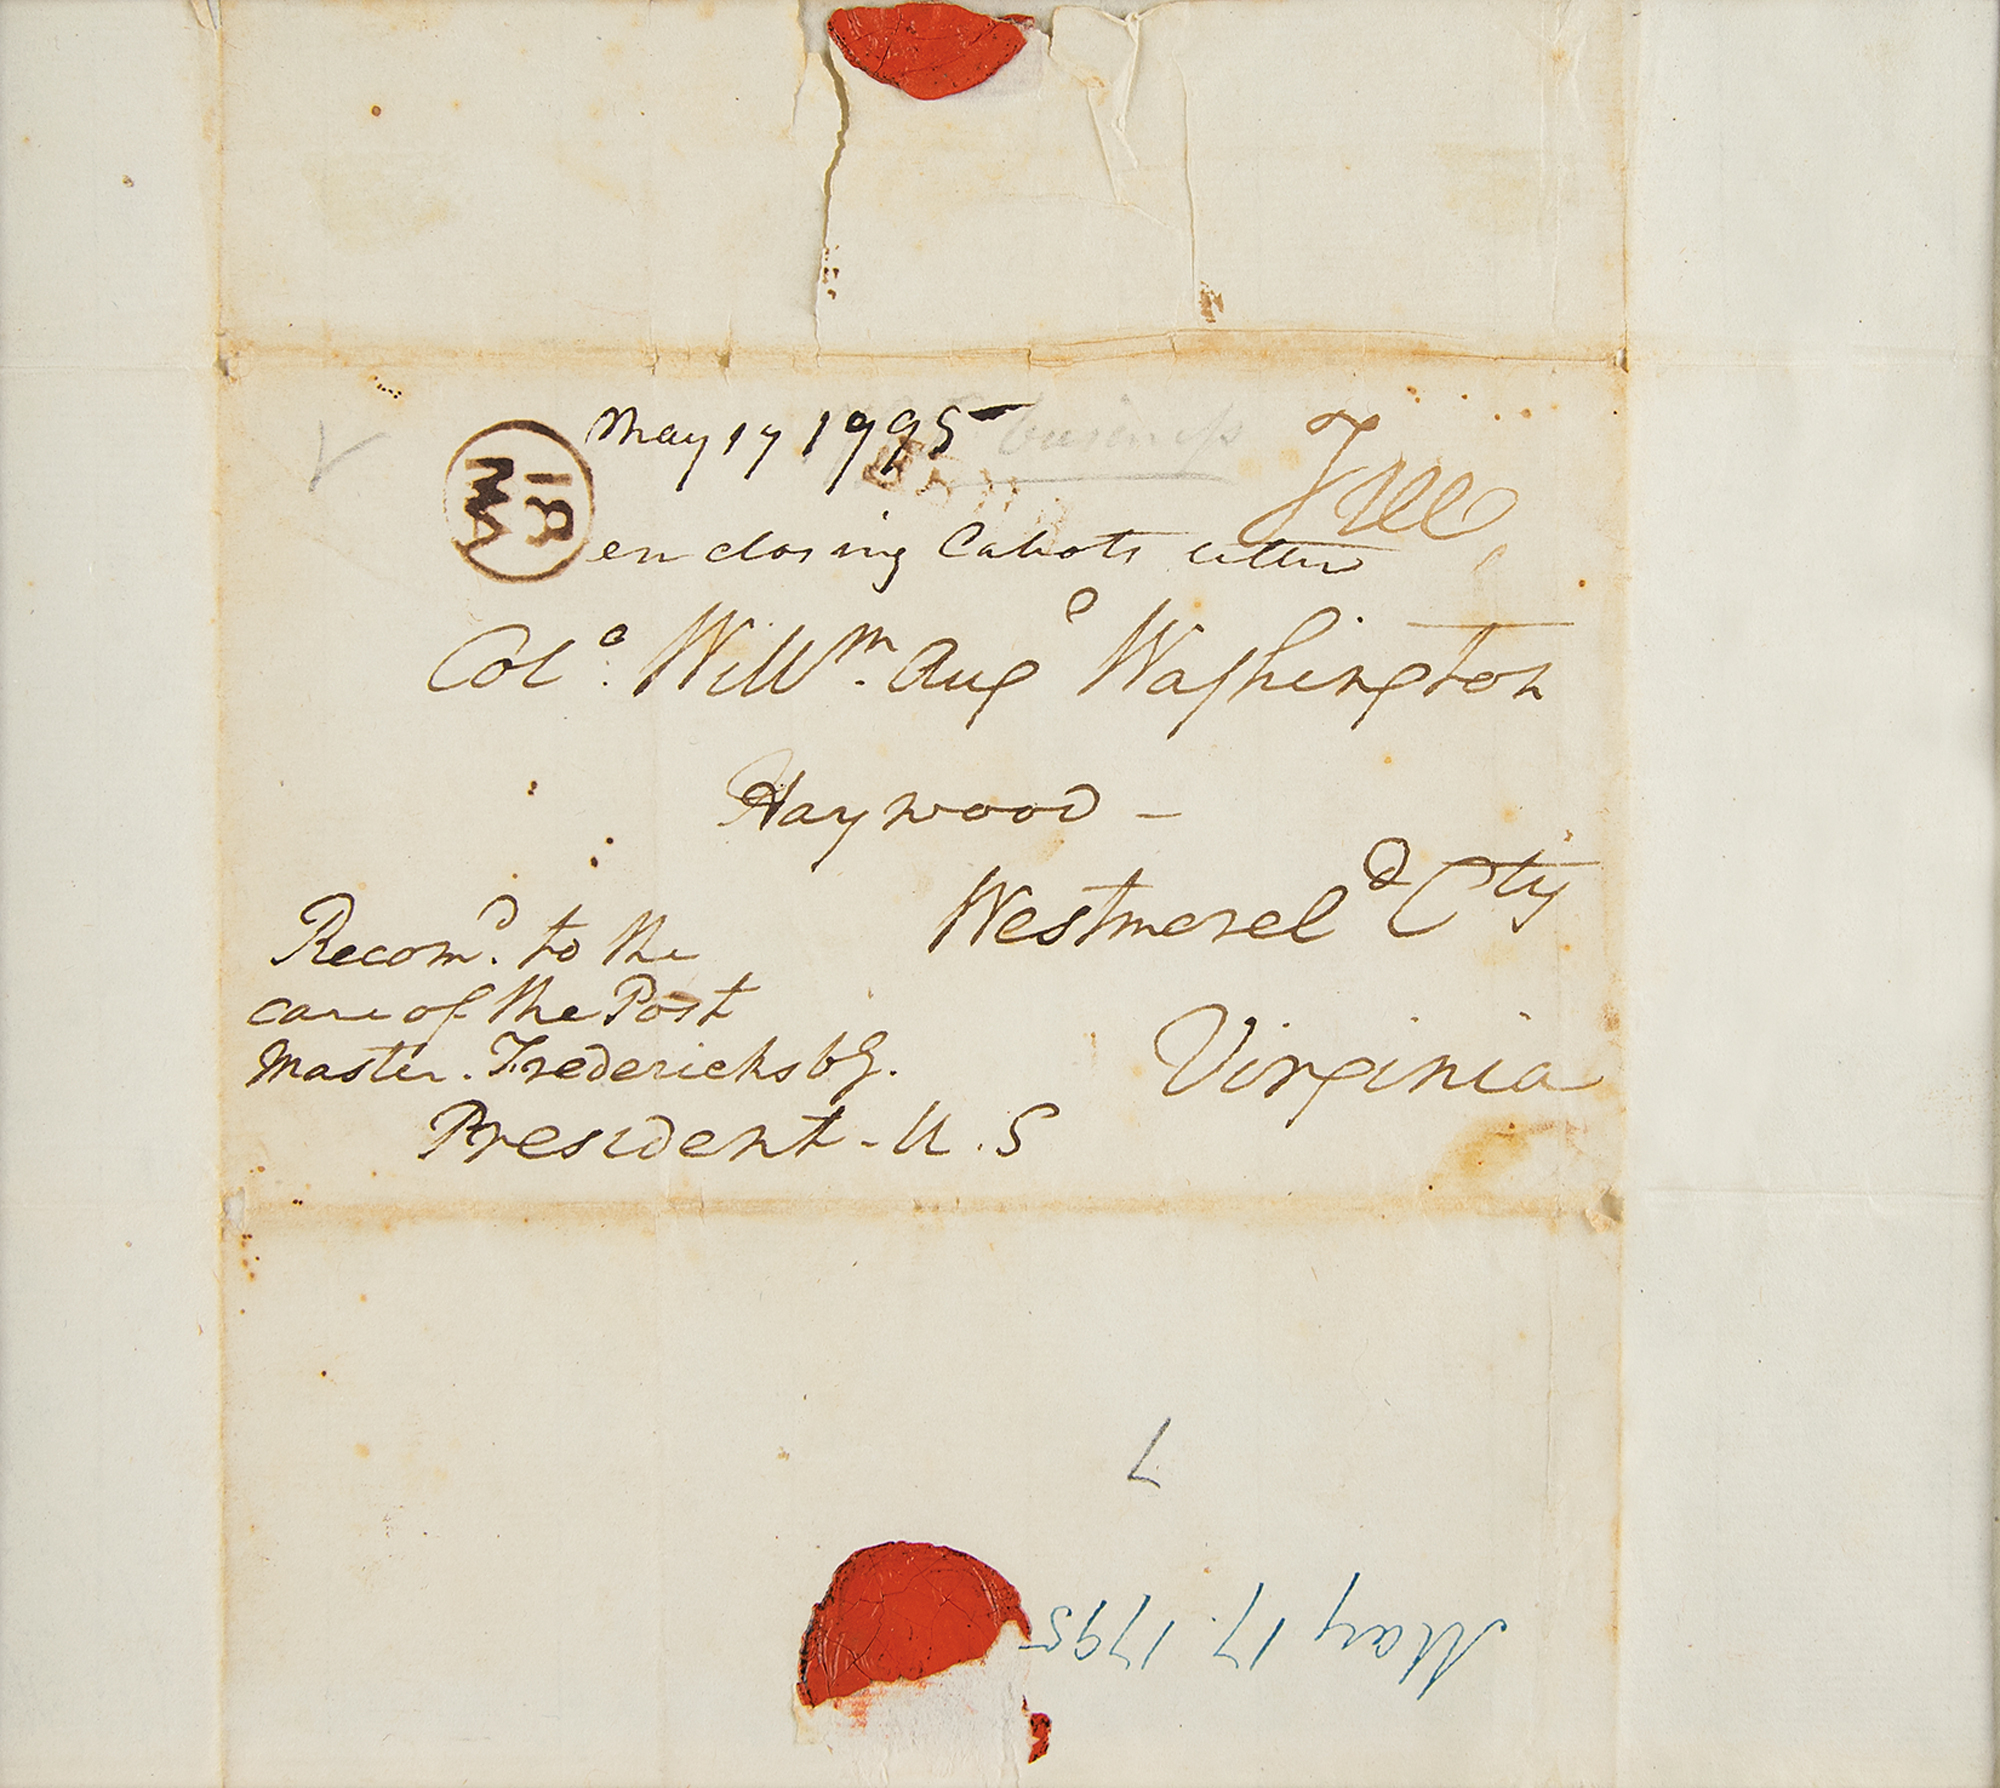 May 17 1795
business
Free
18
MA
enclosing Cabots letter
Colo. Willm. Auge Washington
Haywood —
Westmoreld Cty
Virginia
Recomd. to the
care of the Post
Master. Fredericksbg.
President - U.S
7
May 17. 1795